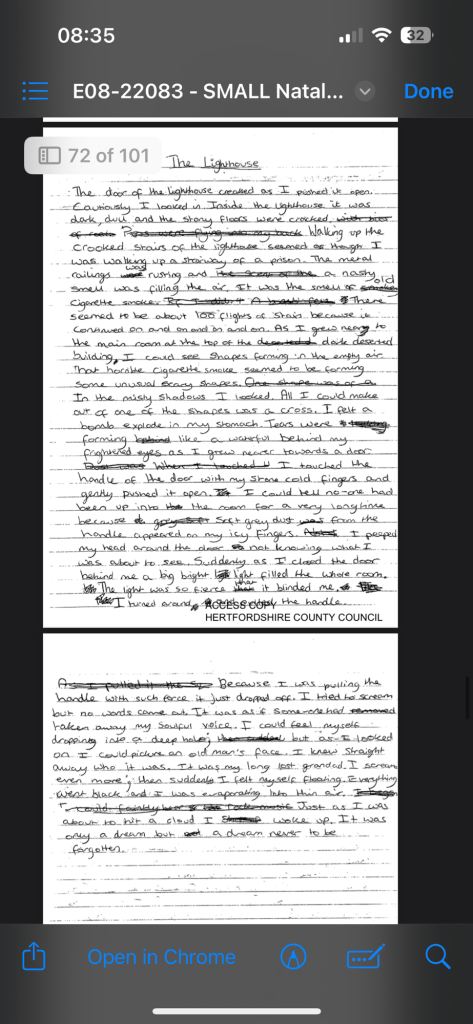 08:35
32
E08-22083 - SMALL Natal...
Done
72 of 101
The Lighthouse
The door of the lighthouse creaked as I pushed it open.
Cautiously I looked in. Inside the lighthouse it was
dark, dull and the stony floors were cracked, with bits
of rocks Walking up the
crooked stairs of the lighthouse seemed as though I
was walking up a stairway of a prison. The metal
railings was rusting and a nasty
smell was filling the air. It was the smell of old
cigarette smoke. There
seemed to be about 100 flights of stairs because it
continued on and on and on and on. As I grew near to
the main room at the top of the deserted dark deserted
building, I could see shapes forming in the empty air.
That horrible cigarette smoke seemed to be forming
some unusual scary shapes. One shape was of a
In the misty shadows I looked. All I could make
out of one of the shapes was a cross. I felt a
bomb explode in my stomach. Tears were
forming behind like a waterfall behind my
frightened eyes as I grew nearer towards a door
When I touched I touched the
handle of the door with my stone cold fingers and
gently pushed it open. I could tell no-one had
been up into the room for a very long time
because soft grey dust was from the
handle appeared on my icy fingers. I peeped
my head around the door not knowing what I
was about to see. Suddenly as I closed the door
behind me a big bright light filled the whole room.
The light was so fierce that it blinded me.
I turned around the handle.
ACCESS COPY
HERTFORDSHIRE COUNTY COUNCIL
As I pulled it Because I was pulling the
handle with such force it just dropped off. I tried to scream
but no words came out. It was as if someone had removed
taken away my soulful voice. I could feel myself
dropping into a deep hole, but as I looked
on I could picture an old man's face. I knew straight
away who it was. It was my long lost grandad. I scream
even more, then suddenly I felt myself floating. Everything
went black and I was evaporating into thin air. I began
I could faintly hear rock music Just as I was
about to hit a cloud I woke up. It was
only a dream but a dream never to be
forgotten.
Open in Chrome